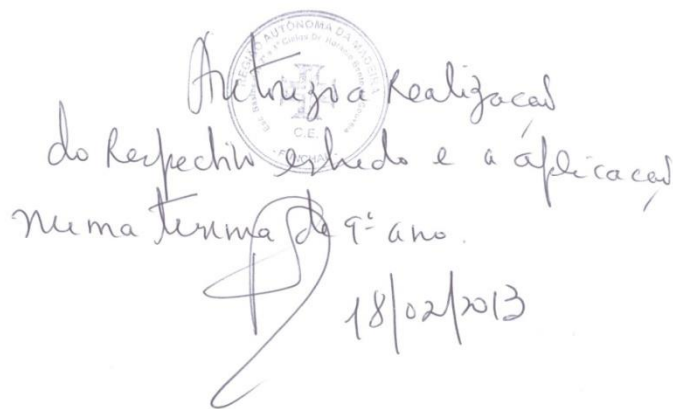 REGIÃO AUTÓNOMA DA MADEIRA
C.E.
FUNCHAL
Autorizo a realização
do respectivo estudo e a aplicação
numa turma de 9º ano.
18/02/2013